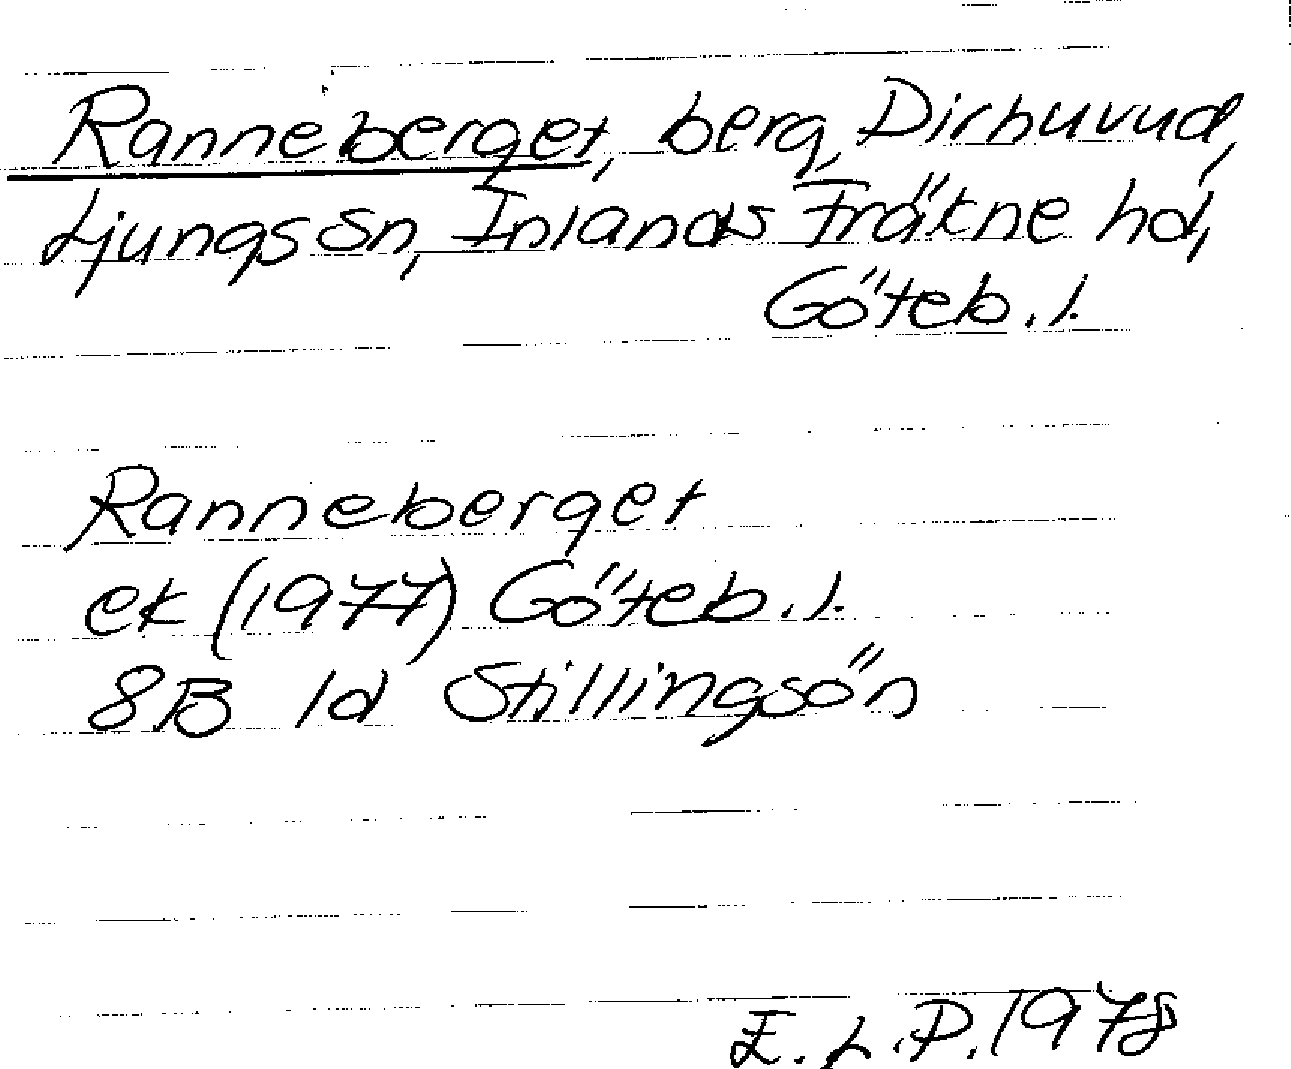 Ranneberget, berg, Dirhuvud,
Ljungs sn, Inlands Fräkne hd,
Göteb. l.
Ranneberget
ek (1977) Göteb. l.
8B 1d Stillingsön
E. L. P. 1978